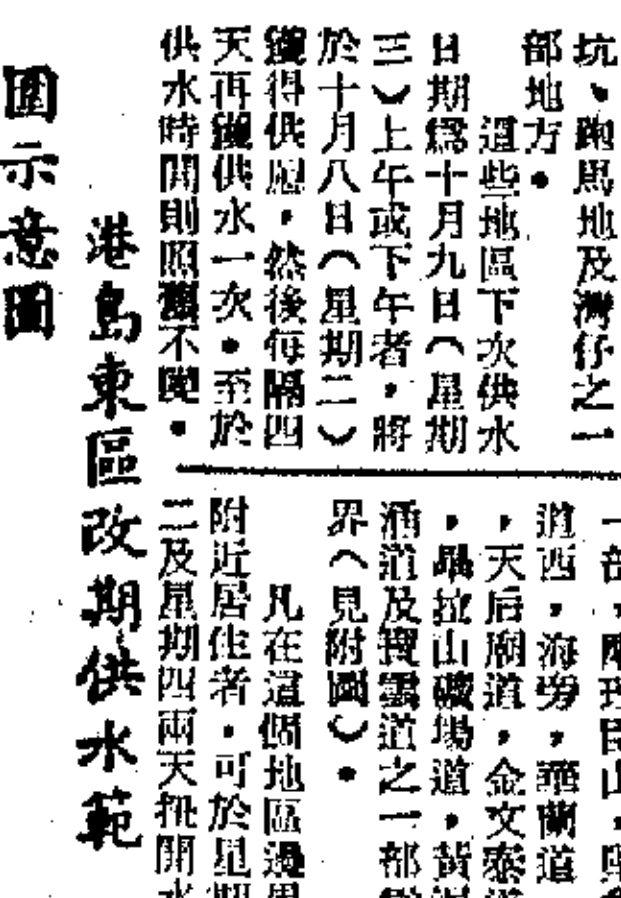 坑、跑馬地及灣仔之一
部地方。
這些地區下次供水
日期爲十月九日（星期
三）上午或下午者，將
於十月八日（星期二）
獲得供應，然後每隔四
天再獲供水一次。至於
供水時間則照舊不變。
一部，
道西，海旁，華蘭道
，天后廟道，金文泰道
，畢拉山礦場道，黃泥
涌道及寶雲道之一部
界（見附圖）。
凡在這個地區邊界
附近居住者，可於星期
二及星期四兩天扭開水
港島東區改期供水範
圍示意圖